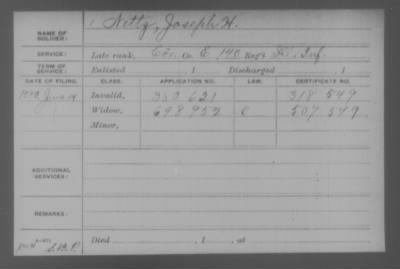 NAME OF SOLDIER: Nettz, Joseph H.
SERVICE: Late rank, Co. E 140 Reg't Inf.
TERM OF SERVICE: Enlisted , 1 Discharged , 1
DATE OF FILING. CLASS. APPLICATION NO. LAW. CERTIFICATE NO.
June 14 Invalid, 380 621 318 549
Widow, 698 952 507 549
Minor,
ADDITIONAL SERVICES:
REMARKS:
Died , 1 , at